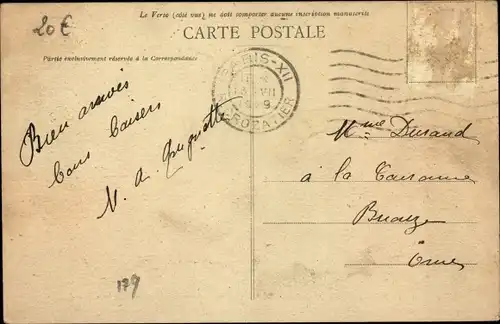 20 €
Le Verso (côté vue) ne doit comporter aucune inscription manuscrite
CARTE POSTALE
Partie exclusivement réservée à la Correspondance
PARIS-XII
VII
R. CROZATIER
Bien arrivés
Bons baisers
M. A.
Mme Durand
à la
Briouze
Orne
179